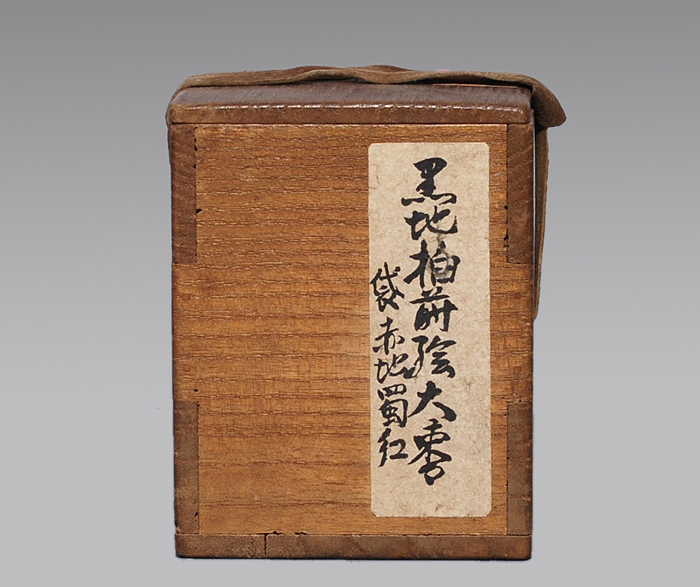 黒地柏蒔絵大棗
袋赤地蜀紅